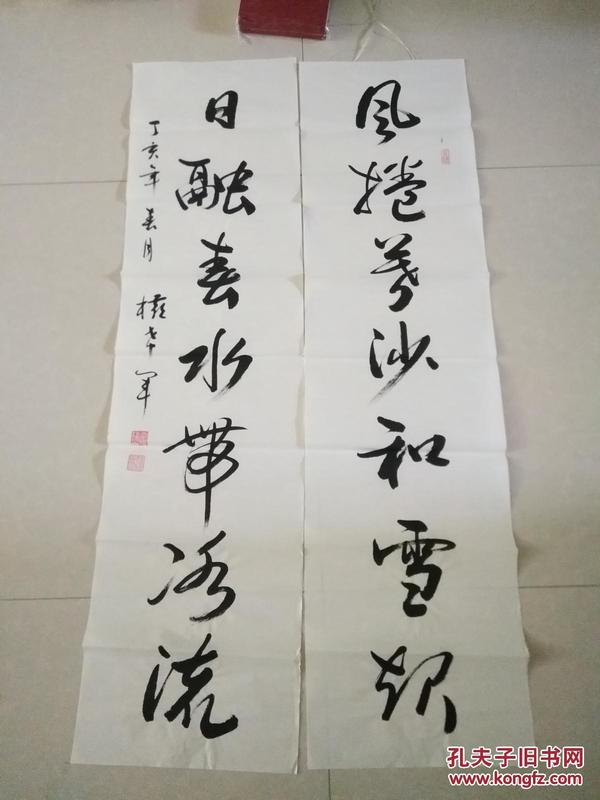 風捲暮沙和雪起
日融春水帶冰流
丁亥年 春月 權希军
孔夫子旧书网
www.kongfz.com